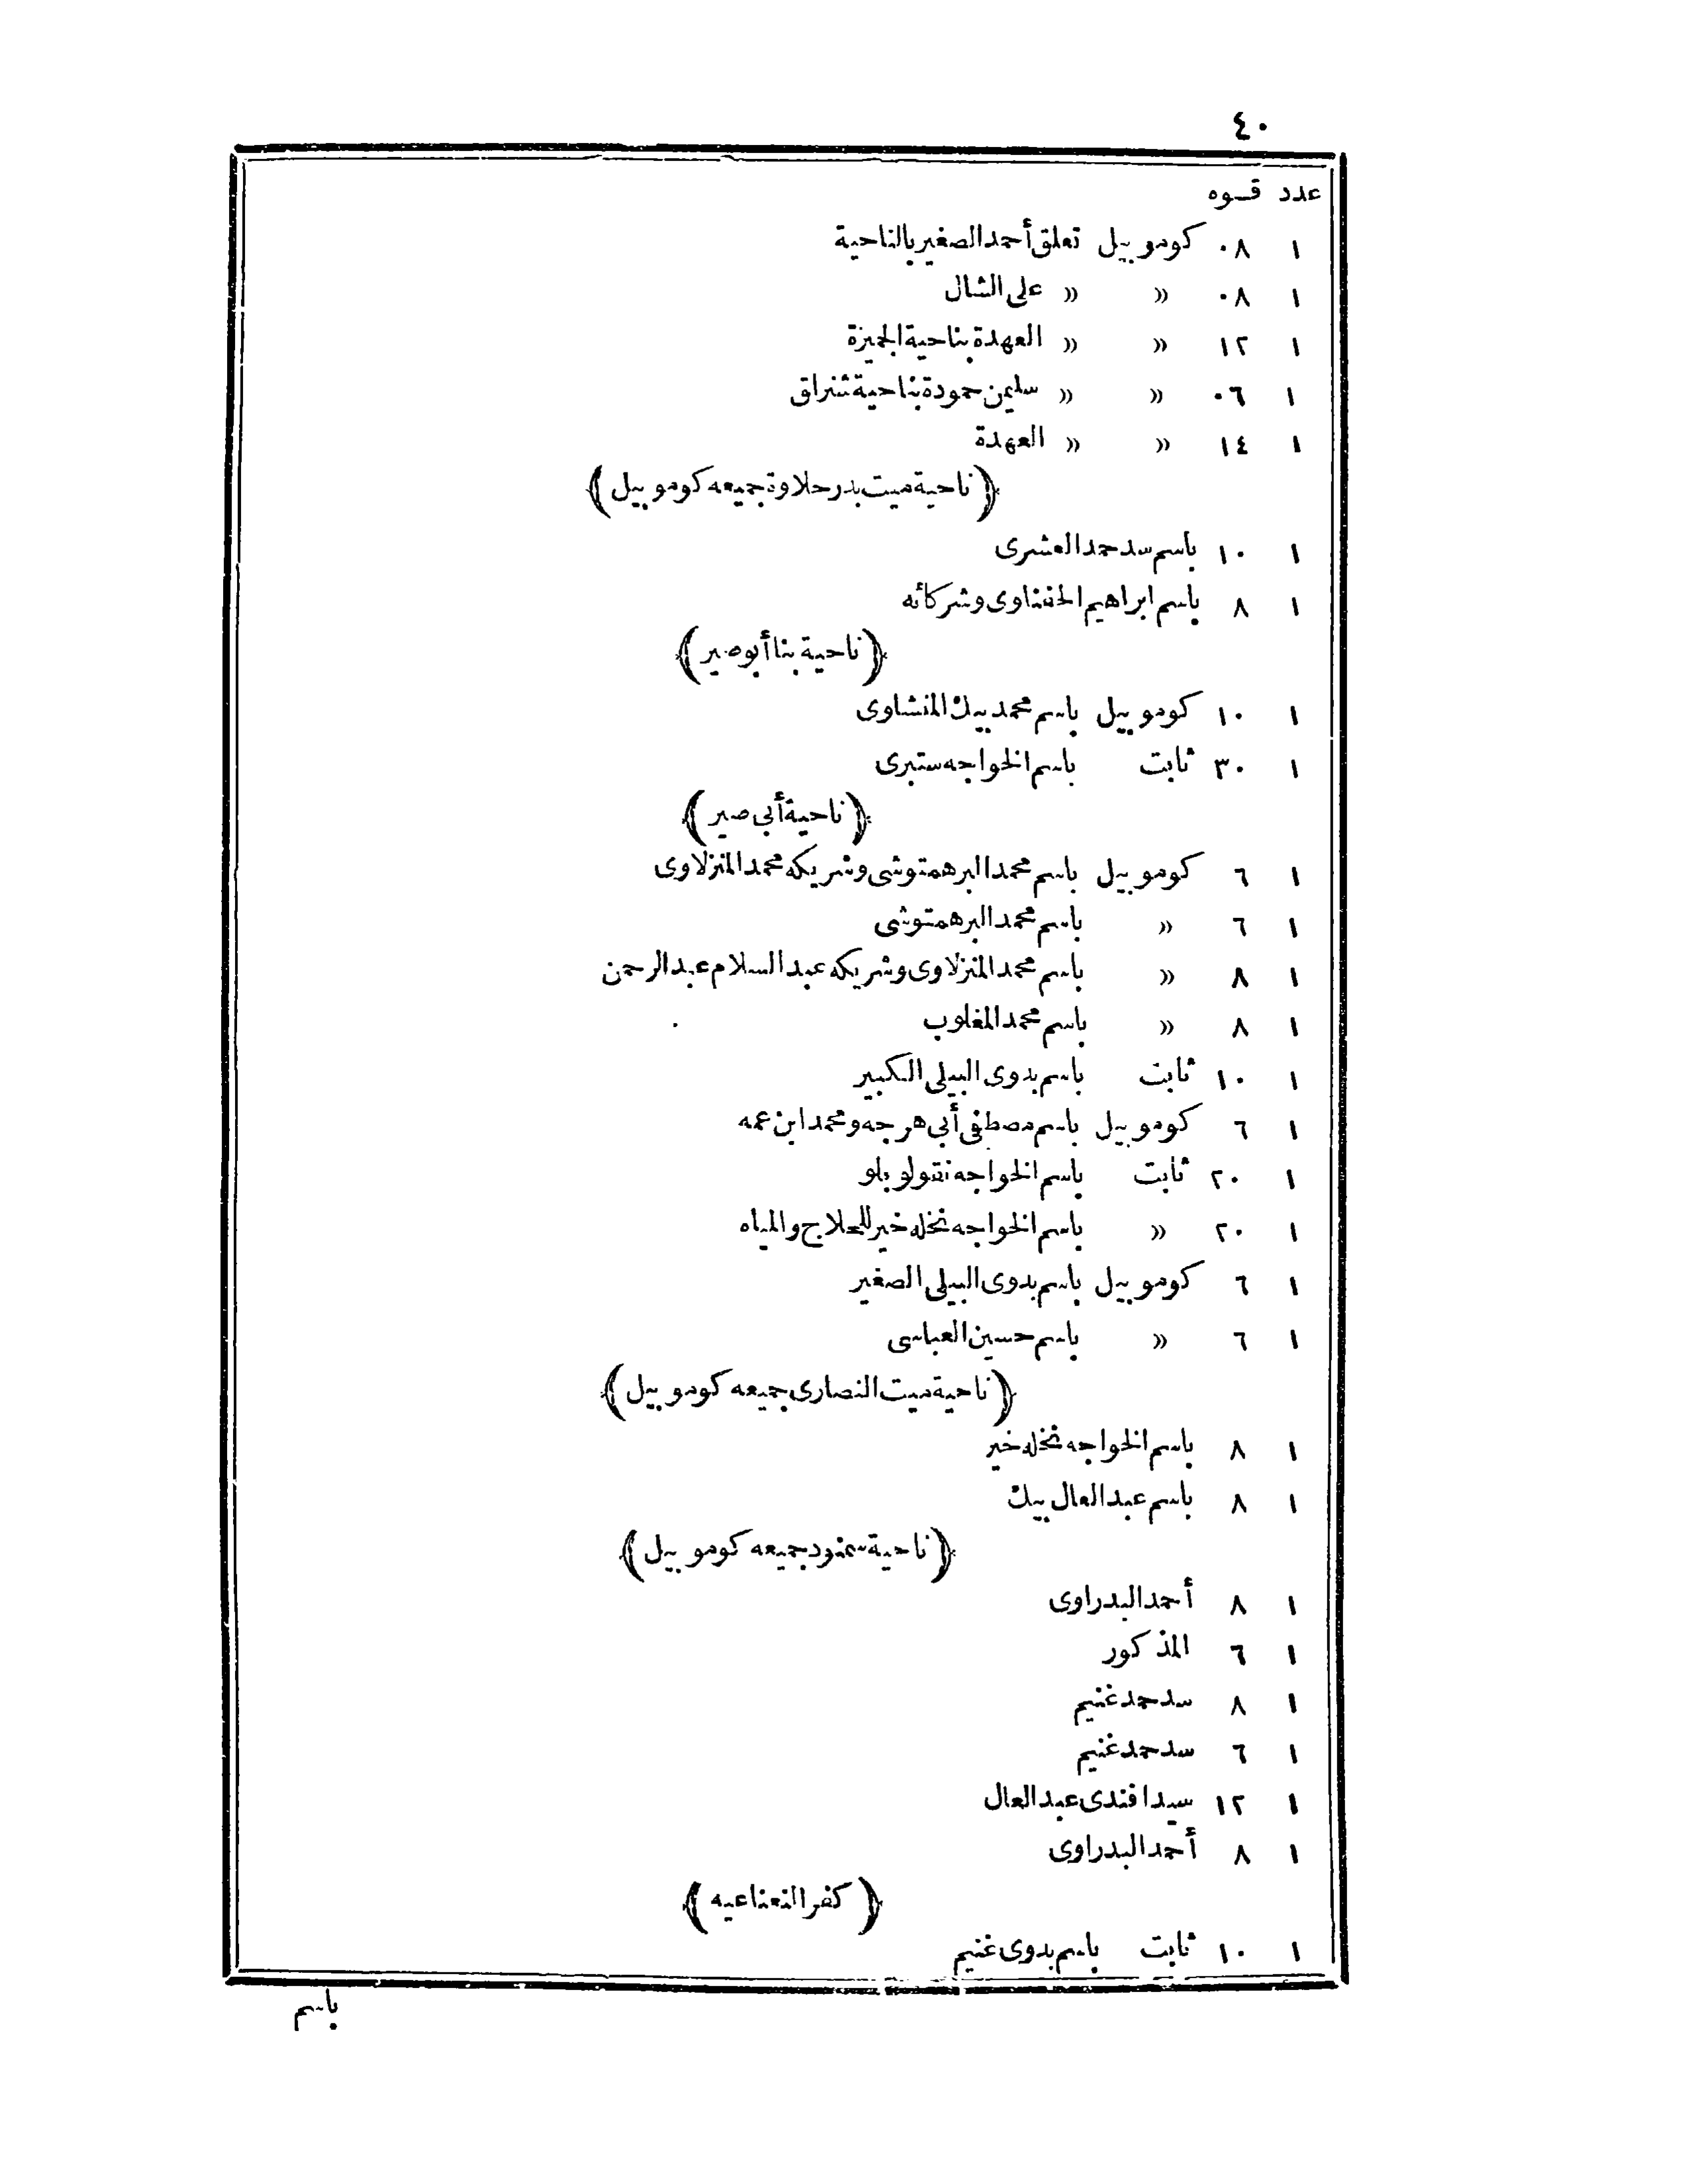 ٤٠
عدد قوه
١ ٠٨ كوموبيل تعلق أحمد الصغير بالناحية
١ ٠٨ » » على الشال
١ ١٢ » » العهدة بناحية الجميزة
١ ٠٦ » » سليمن حمودة بناحية شنراق
١ ١٤ » » العهدة
﴿ناحية ميت بدر حلاوة جميعه كوموبيل﴾
١ ١٠ باسم سد حمد العشرى
١ ٨ باسم ابراهيم الحفناوى وشركائه
﴿ناحية بنا أبو صير﴾
١ ١٠ كوموبيل باسم محمد بيك المنشاوى
١ ٣٠ ثابت باسم الخواجه ستبرى
﴿ناحية أبى صير﴾
١ ٦ كوموبيل باسم محمد البرهمتوشى وشريكه محمد المنزلاوى
١ ٦ » باسم محمد البرهمتوشى
١ ٨ » باسم محمد المنزلاوى وشريكه عبد السلام عبد الرحمن
١ ٨ » باسم محمد المغلوب
١ ١٠ ثابت باسم بدوى البيلى الكبير
١ ٦ كوموبيل باسم مصطفى أبى هرجه ومحمد ابن عمه
١ ٢٠ ثابت باسم الخواجه نقولو بلو
١ ٢٠ » باسم الخواجه نخله خير للحلاج والمياه
١ ٦ كوموبيل باسم بدوى البيلى الصغير
١ ٦ » باسم حسين العباسى
﴿ناحية ميت النصارى جميعه كوموبيل﴾
١ ٨ باسم الخواجه نخله خير
١ ٨ باسم عبد العال بيك
﴿ناحية سمنود جميعه كوموبيل﴾
١ ٨ أحمد البدراوى
١ ٦ المذكور
١ ٨ سد حمد غنيم
١ ٦ سد حمد غنيم
١ ١٢ سيد افندى عبد العال
١ ٨ أحمد البدراوى
﴿كفر النعناعيه﴾
١ ١٠ ثابت باسم بدوى غنيم
باسم